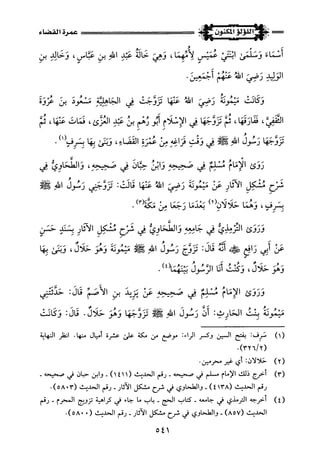 اللؤلؤ المكنون
عمرة القضاء
أَسْمَاءَ وَسَلْمَى ابْنَتَيْ عُمَيْسٍ لِأُمِّهِمَا، وَهِيَ خَالَةُ عَبْدِ اللهِ بنِ عَبَّاسٍ، وَخَالِدِ بنِ
الوَلِيدِ رَضِيَ اللهُ عَنْهُمْ أَجْمَعِينَ.
وَكَانَتْ مَيْمُونَةُ رَضِيَ اللهُ عَنْهَا تَزَوَّجَتْ فِي الجَاهِلِيَّةِ مَسْعُودَ بنَ عُرْوَةَ
الثَّقَفِيَّ، فَفَارَقَهَا، ثُمَّ تَزَوَّجَهَا فِي الإِسْلَامِ أَبُو رُهْمِ بنُ عَبْدِ العُزَّى، فَمَاتَ عَنْهَا، ثُمَّ
تَزَوَّجَهَا رَسُولُ اللهِ ﷺ فِي وَقْتِ فَرَاغِهِ مِنْ عُمْرَةِ القَضَاءِ، وَبَنَى بِهَا بِسَرِفٍ(١).
رَوَى الإِمَامُ مُسْلِمٌ فِي صَحِيحِهِ وَابْنُ حِبَّانَ فِي صَحِيحِهِ، وَالطَّحَاوِيُّ فِي
شَرْحِ مُشْكِلِ الآثَارِ عَنْ مَيْمُونَةَ رَضِيَ اللهُ عَنْهَا قَالَتْ: تَزَوَّجَنِي رَسُولُ اللهِ ﷺ
بِسَرِفٍ، وَهُمَا حَلَالَانِ(٢) بَعْدَمَا رَجَعَا مِنْ مَكَّةَ(٣).
وَرَوَى التِّرْمِذِيُّ فِي جَامِعِهِ وَالطَّحَاوِيُّ فِي شَرْحِ مُشْكِلِ الآثَارِ بِسَنَدٍ حَسَنٍ
عَنْ أَبِي رَافِعٍ ﷺ أَنَّهُ قَالَ: تَزَوَّجَ رَسُولُ اللهِ ﷺ مَيْمُونَةَ وَهُوَ حَلَالٌ، وَبَنَى بِهَا
وَهُوَ حَلَالٌ، وَكُنْتُ أَنَا الرَّسُولُ بَيْنَهُمَا(٤).
وَرَوَى الإِمَامُ مُسْلِمٌ فِي صَحِيحِهِ عَنْ يَزِيدَ بنِ الأَصَمِّ قَالَ: حَدَّثَتْنِي
مَيْمُونَةُ بِنْتُ الحَارِثِ: أَنَّ رَسُولَ اللهِ ﷺ تَزَوَّجَهَا وَهُوَ حَلَالٌ. قَالَ: وَكَانَتْ
(١) سَرِف: بفتح السين وكسر الراء: موضع من مكة على عشرة أميال منها. انظر النهاية
(٣٢٦/٢).
(٢) حلالان: أي غير محرمين.
(٣) أخرج ذلك الإمام مسلم في صحيحه - رقم الحديث (١٤١١) - وابن حبان في صحيحه -
رقم الحديث (٤١٣٨) - والطحاوي في شرح مشكل الآثار - رقم الحديث (٥٨٠٣).
(٤) أخرجه الترمذي في جامعه - كتاب الحج - باب ما جاء في كراهية تزويج المحرم - رقم
الحديث (٨٥٧) - والطحاوي في شرح مشكل الآثار - رقم الحديث (٥٨٠٠).
٥٤١